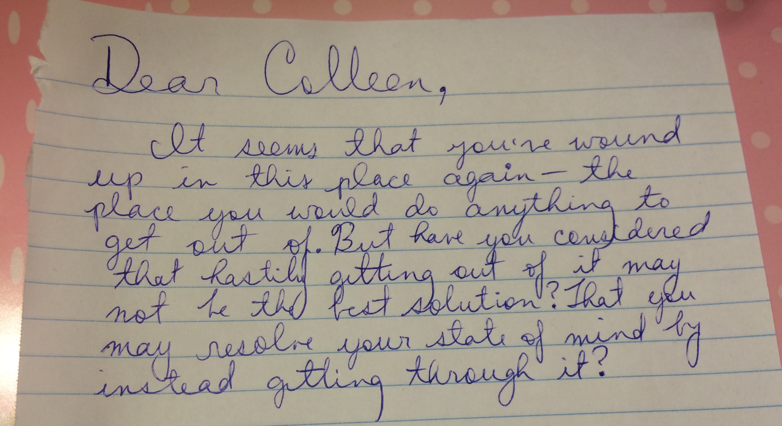 Dear Colleen,
It seems that you've wound
up in this place again — the
place you would do anything to
get out of. But have you considered
that hastily getting out of it may
not be the best solution? That you
may resolve your state of mind by
instead getting through it?